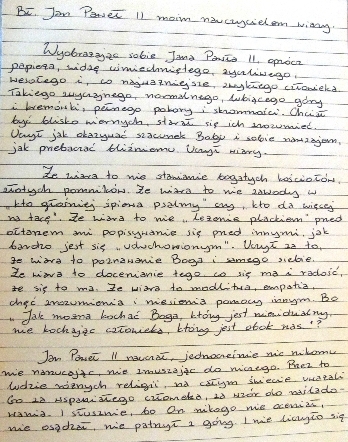 Bł. Jan Paweł II moim nauczycielem wiary.
Wyobrażając sobie Jana Pawła II, oprócz
papieża, widzę uśmiechniętego, życzliwego,
wesołego i, co najważniejsze, zwykłego człowieka.
Takiego zwyczajnego, normalnego, lubiącego góry
i kremówki, pełnego pokory i skromności. Chciał
być blisko wiernych, starał się ich zrozumieć.
Uczył jak okazywać szacunek Bogu i sobie nawzajem,
jak przebaczać bliźniemu. Uczył wiary.
Że wiara to nie stawianie bogatych kościołów,
złotych pomników. Że wiara to nie zawody w
„kto głośniej śpiewa psalmy" czy „kto da więcej
na tacę". Że wiara to nie „leżenie plackiem" przed
ołtarzem ani popisywanie się przed innymi, jak
bardzo jest się „uduchowionym". Uczył za to,
że wiara to poznawanie Boga i samego siebie.
Że wiara to docenianie tego co się ma i radość,
że się to ma. Że wiara to modlitwa, empatia,
chęć zrozumienia i niesienia pomocy innym. Bo
„Jak można kochać Boga, który jest niewidzialny,
nie kochając człowieka, który jest obok nas"?
Jan Paweł II nauczał, jednocześnie nic nikomu
nie narzucając, nie zmuszając do niczego. Przez to
ludzie różnych religii, na całym świecie uważali
Go za wspaniałego człowieka, za wzór do naślado-
wania. I słusznie, bo On nikogo nie oceniał,
nie osądzał, nie patrzył z góry. I nie liczyło się